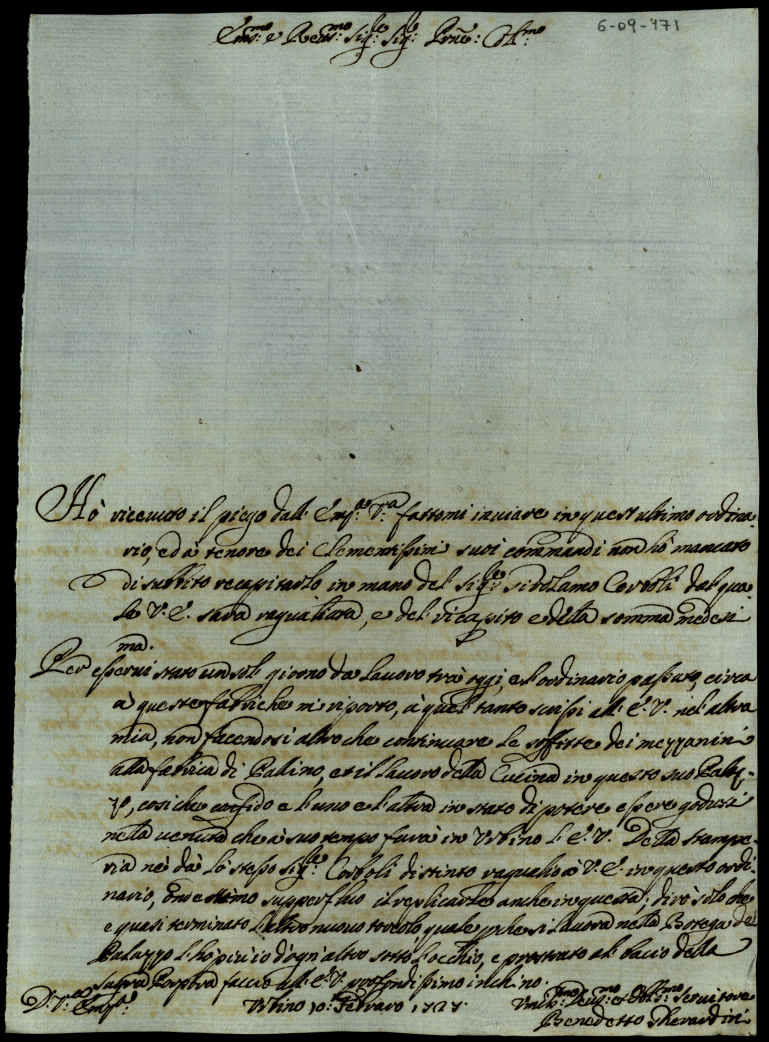 Em:mo e Rev:mo Sig:re Sig:re Prne: Col:mo
6-09-471
Hò ricevuto il piego dall' Em:za V:ra fattomi inviare in quest ultimo ordina
rio, ed à tenore dei clementissimi suoi commandi non hò mancato
di subbito recapitarlo in mano del Sig:re Girolamo Corboli dal qua
le V. E. sarà ragualiata, e del ricapito e della somma medesi
ma.
Per esservi stato un sol giorno da lavoro trà oggi, e l'ordinario passato, circa
à queste fabriche mi riporto, à quel tanto scrissi all' E. V. nel altra
mia, non facendosi altro che continuare le soffitte dei mezzanini
alla fabrica di Pallino, et il lavoro della Cucina in questo suo Palaz-
zo, cosi che confido e l'uno e l'altra in stato di potere essere goduti
nella venuta che à suo tempo farà in Urbino l' E. V. Della stampe-
ria ne dà lo stesso Sig:re Corboli distinto raguaglio à V. E. in questo ordi-
nario, onde stimo superfluo il replicarle anche in questa; dirò solo che
è quasi terminato l'altro nuovo torcolo quale perche si lavora nella Botega del
Palazzo l'hò più d'ogn'altro sotto l'occhio, e prostrato al bacio della
sacra Porpora faccio all' E. V. profondissimo inchino.
D. V:ra Em:za
Urbino 10: Febraro 1727
Umil:mo Dev:mo et Obl:mo Servitore
Benedetto Gherardini